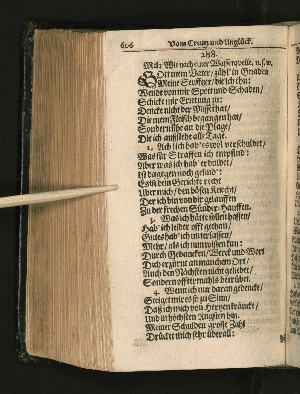 606 Vom Creutz und Unglück.
288.
Mel: Wie nach einer Wasserquelle, u.s.w.
GOtt mein Vater / zähl' in Gnaden
Meine Seuffzer / die ich thu:
Wende von mir Spott und Schaden /
Schicke mir Errettung zu:
Dencke nicht der Missethat /
Die mein Fleisch begangen hat /
Sondern siehe an die Plage /
Die ich ausstehe alle Tage.
2. Ach ich hab' es wol verschuldet /
Was für Straffen ich empfind':
Aber was ich hab' erduldet /
Ist dagegen noch gelind':
Es ist dein Gerichte recht
Uber mich / den bösen Knecht /
Der ich bin von dir gelauffen
Zu der frechen Sünder-Hauffen.
3. Was ich hätte sollen hassen /
Hab' ich leider offt gethan /
Gutes hab' ich unterlassen /
Mehr / als ich nun wissen kan:
Durch Gedancken / Werck und Wort
Dich erzürnt an manchem Ort /
Auch den Nächsten nicht geliebet /
Sondern offtermahls betrübet.
4. Wenn ich nur daran gedencke /
Steiget mir es so zu Sinn /
Daß ich mich von Hertzen kräncke /
Und in höchsten Ängsten bin.
Meiner Schulden grosse Zahl
Drücket mich sehr überall: